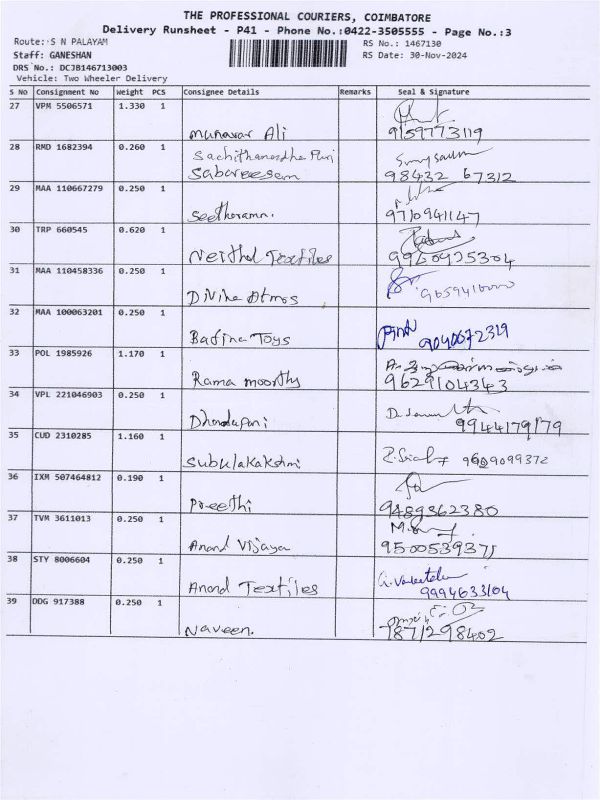 THE PROFESSIONAL COURIERS, COIMBATORE
Delivery Runsheet - P41 - Phone No.:0422-3505555 - Page No.:3
Route: S N PALAYAM
RS No.: 1467130
Staff: GANESHAN
RS Date: 30-Nov-2024
DRS No.: DCJB146713003
Vehicle: Two Wheeler Delivery
S No Consignment No Weight PCS Consignee Details Remarks Seal & Signature
27 VPM 5506571 1.330 1
Munavar Ali 9159773119
28 RMD 1682394 0.260 1
Sabareesam 98432 67312
29 MAA 110667279 0.250 1
Seetharamn. 9710941147
30 TRP 660545 0.620 1
Neithal Textiles 9960925304
31 MAA 110458336 0.250 1
Divine Atmos
32 MAA 100063201 0.250 1
Toys
33 POL 1985926 1.170 1
Rama moorthy 9629104343
34 VPL 221046903 0.250 1
Dhandapani 9944179179
35 CUD 2310285 1.160 1
Subulakakshmi 9629099372
36 IXM 507464812 0.190 1
Preethi 9489362380
37 TVM 3611013 0.250 1
Anand Vijaya 9500539371
38 STY 8006604 0.250 1
Anand Textiles 9994633104
39 DDG 917388 0.250 1
Naveen. 7871298402